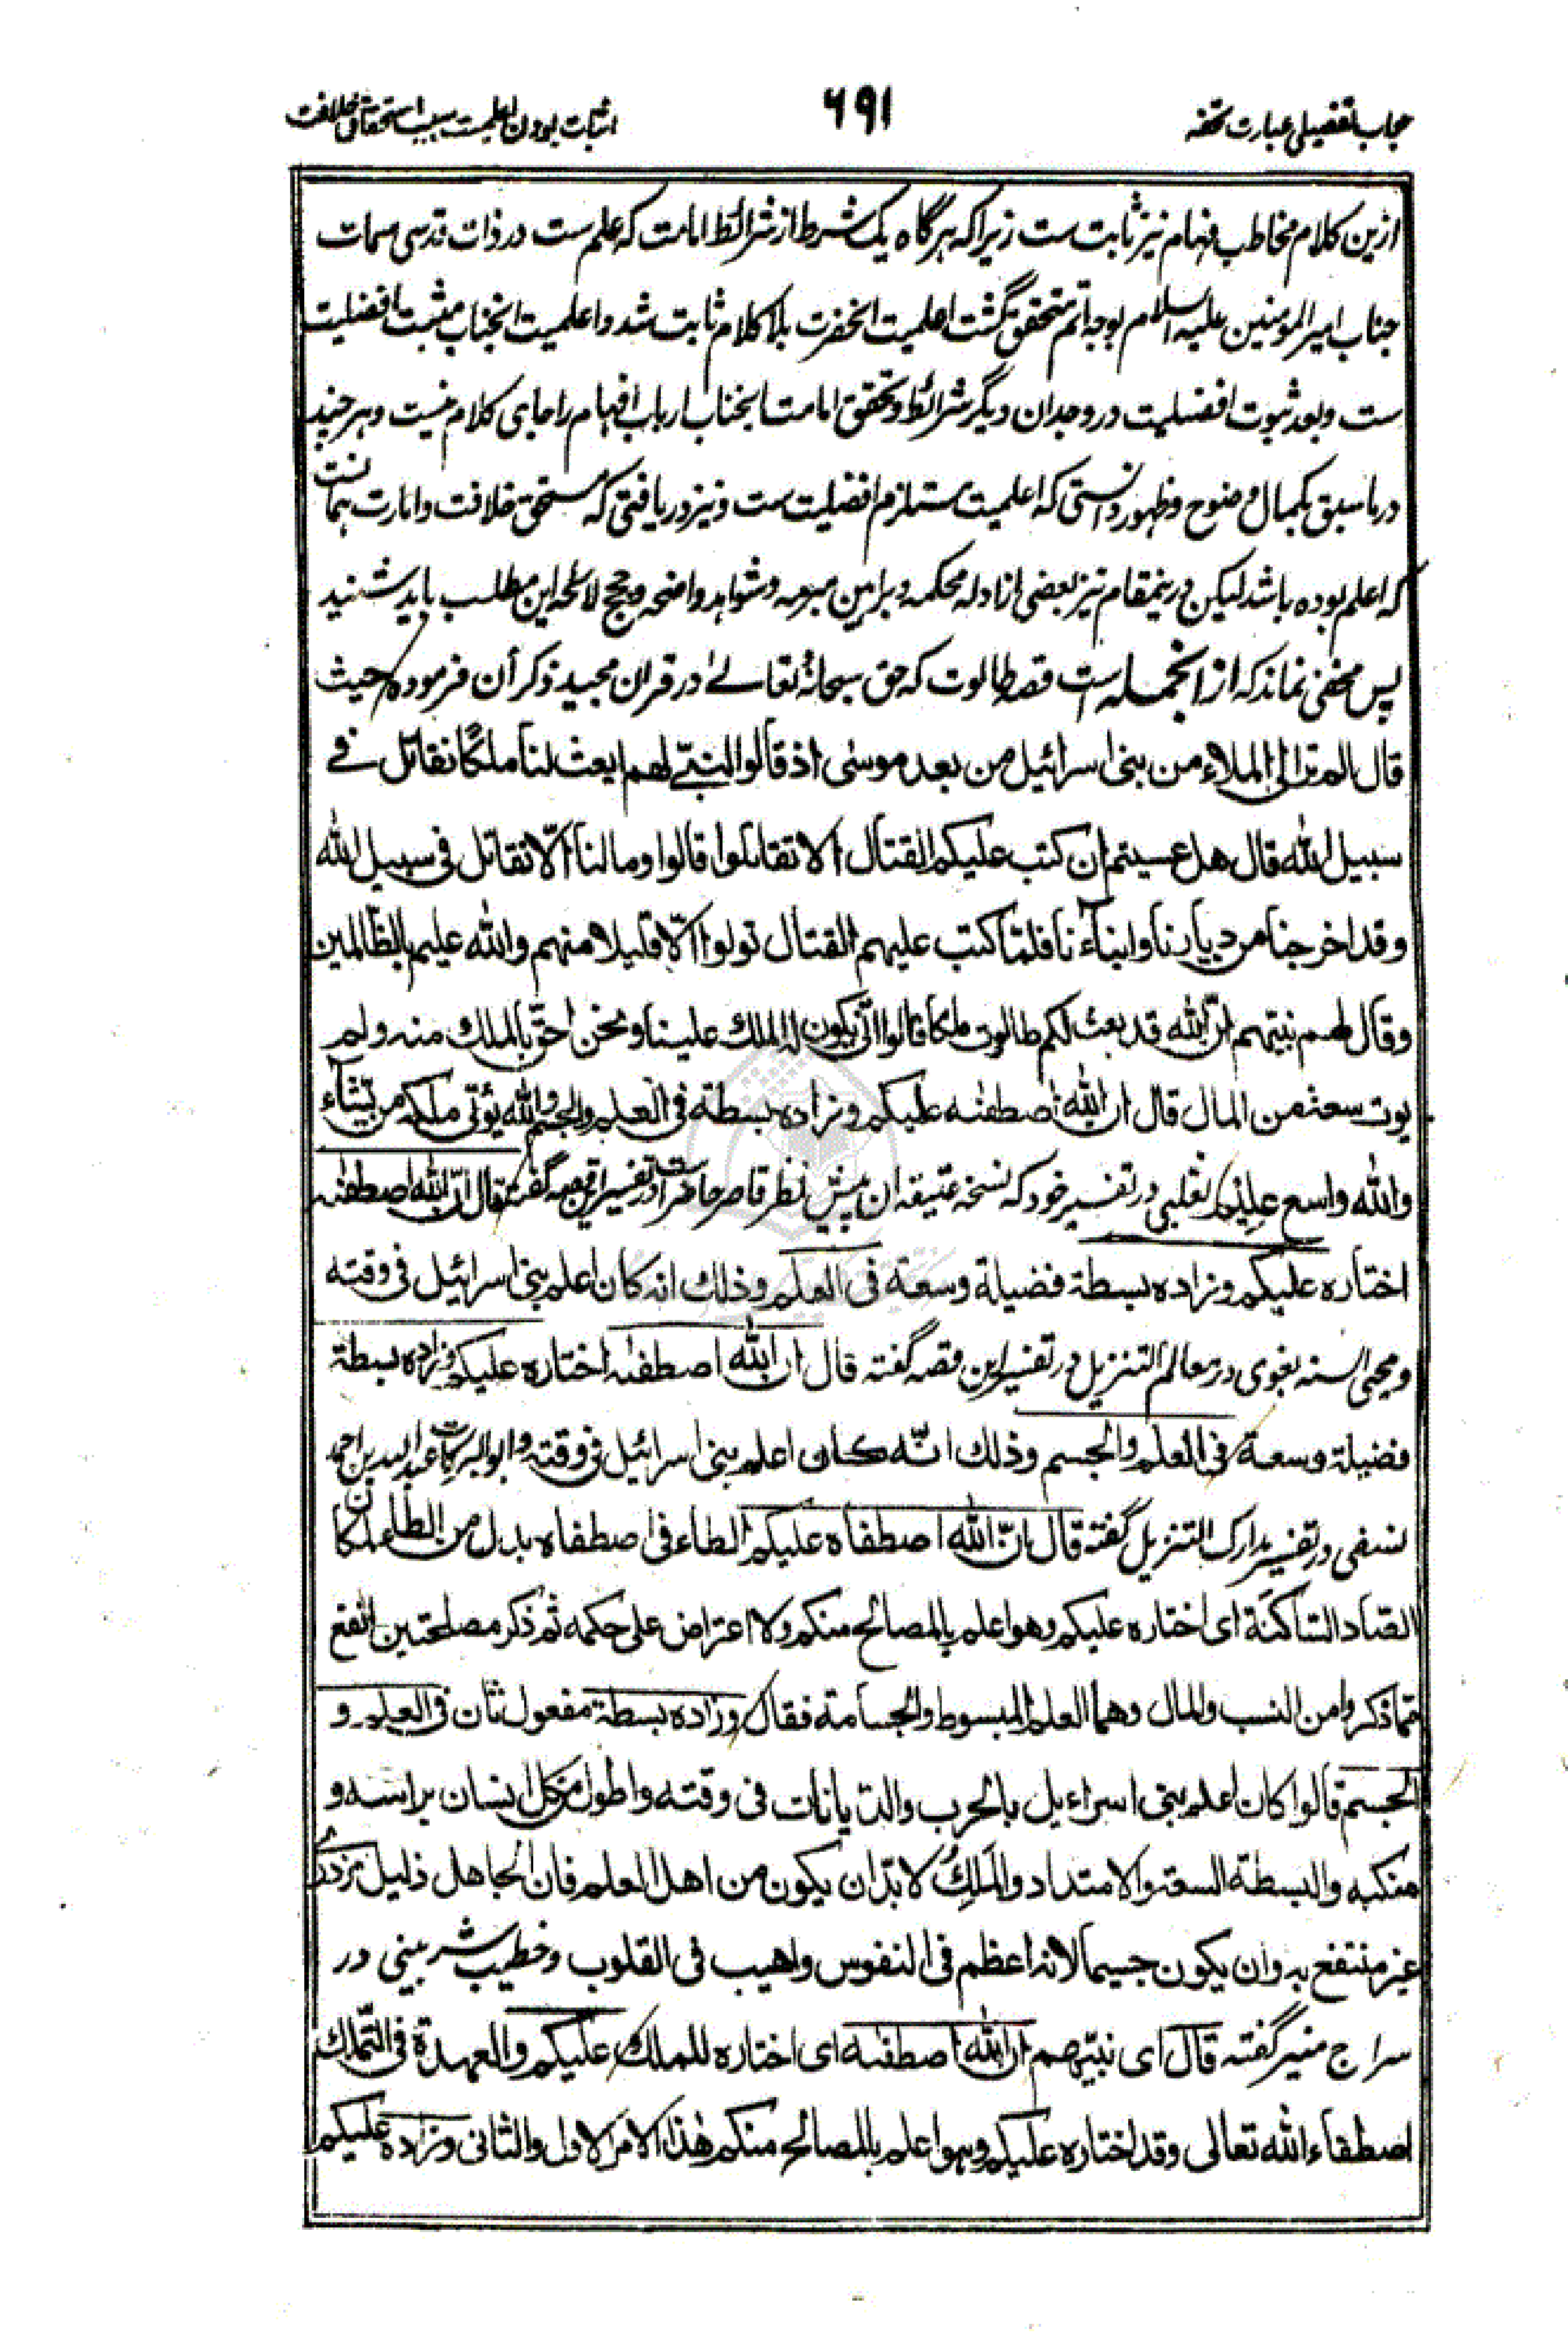 جواب تفصیلی عبارت تحفه
۶۹۱
اثبات بودن اعلمیت سبب استحقاق خلافت
ازین کلام مخاطب فهام نیز ثابت ست زیرا که هرگاه یک شرط از شرائط امامت که علم ست در ذات قدسی سمات
جناب امیرالمومنین علیه السلام بوجه اتم متحقق گشت اعلمیت آنحضرت بلا کلام ثابت شد و اعلمیت آنجناب مثبت افضلیت
ست و بعد ثبوت افضلیت در وجدان دیگر شرائط و تحقق امامت آنجناب ارباب افهام را جای کلام نیست و هر چند
در ما سبق بکمال وضوح و ظهور دانستی که اعلمیت مستلزم افضلیت ست و نیز دریافتی که مستحق خلافت و امارت همانست
که اعلم بوده باشد لیکن درینمقام نیز بعضی از ادله محکمه و براهین مبرمه و شواهد واضحه و حجج لائحه این مطلب باید شنید
پس مخفی نماند که از انجمله است قصه طالوت که حق سبحانه تعالے در قران مجید ذکر آن فرموده حیث
قال الم تر الی الملاء من بنی اسرائیل من بعد موسی اذ قالوا لنبیّ لهم ابعث لنا ملکًا نقاتل فے
سبیل الله قال هل عسیتم ان کتب علیکم القتال الا تقاتلوا قالوا وما لنا الّا نقاتل فی سبیل الله
وقد اخرجنا من دیارنا وابناءنا فلمّا کتب علیهم القتال تولوا الّا قلیلا منهم والله علیم بالظّالمین
وقال لهم نبیهم انّ الله قد بعث لکم طالوت ملکا قالوا انّی یکون له الملک علینا ونحن احقّ بالملک منه ولم
یوت سعة من المال قال ان الله اصطفٰه علیکم وزاده بسطة فی العلم والجسم والله یؤتی ملکه من یّشاء
والله واسع علیم ثعلبی در تفسیر خود که نسخه عتیقه ان پیش نظر قاصر حاضر است در تفسیر این قصه گفته قال انّ الله اصطفٰه
اختاره علیکم وزاده بسطة فضیلة وسعة فی العلم وذلک انه کان اعلم بنی اسرائیل فی وقته
و محیی السنه بغوی در معالم التنزیل در تفسیر این قصه گفته قال ان الله اصطفٰه اختاره علیکم وزاده بسطة
فضیلة وسعة فی العلم والجسم وذلک انّه کان اعلم بنی اسرائیل فی وقته و ابو البرکات عبدالله بن احمد
نسفی در تفسیر مدارک التنزیل گفته قال انّ الله اصطفاه علیکم الطاء فی اصطفاه بدل من التاء لمکان
الصّاد السّاکنة ای اختاره علیکم وهو اعلم بالمصالح منکم ولا اعتراض علی حکمه ثم ذکر مصلحتین انفع
ممّا ذکروا من النسب والمال وهما العلم المبسوط والجسامة فقال وزاده بسطة مفعول ثان فی العلم و
الجسم قالوا کان اعلم بنی اسراءیل بالحرب والدّیانات فی وقته واطول من کل انسان براسه و
منکبه والبسطة السعة والامتداد والمَلِکُ لا بدّ ان یکون من اهل العلم فان الجاهل ذلیل مزدری
غیر منتفع به وان یکون جسیما لانه اعظم فی النفوس واهیب فی القلوب و خطیب شربینی در
سراج منیر گفته قال ای نبیّهم ان الله اصطفٰه ای اختاره للملک علیکم والعمدة فی التّملک
اصطفاء الله تعالی وقد اختاره علیکم وهو اعلم بالمصالح منکم هٰذا الامر الاول والثانی وزاده علیکم